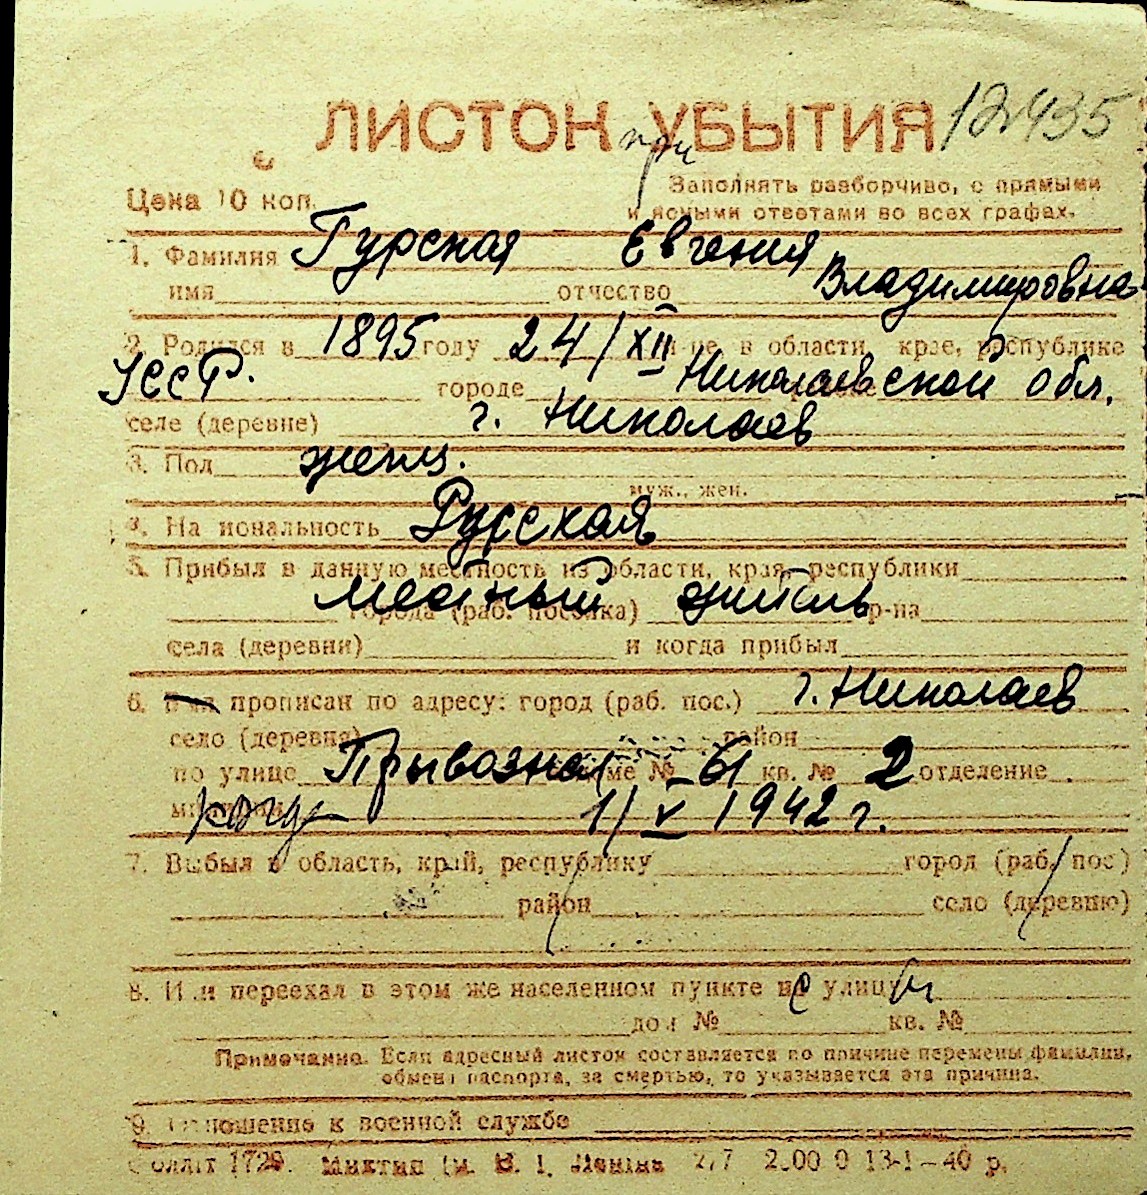 12435
ЛИСТОК УБЫТИЯ
при
Цена 10 коп.
Заполнять разборчиво, с прямыми
и ясными ответами во всех графах.
1. Фамилия Гурская Евгения
имя отчество Владимировна
2. Родился в 1895 году 24/XII в области, крае, республике
УССР. городе Николаевской обл.
селе (деревне) г. Николаев
3. Пол женщ.
муж., жен.
4. На иональность Русская
5. Прибыл в данную местность из области, края, республики
местный житель
города (раб. поселка) р-на
села (деревни) и когда прибыл
6. прописан по адресу: город (раб. пос.) г. Николаев
село (деревня) район
по улице Прывозная доме № 61 кв. № 2 отделение
когда 1/V 1942 г.
7. Выбыл в область, край, республику город (раб. пос)
район село (деревню)
8. Или переехал в этом же населенном пункте с улицы
дом № кв. №
Примечание. Если адресный листок составляется по причине перемены фамилии,
обмена паспорта, за смертью, то указывается эта причина.
9. Отношение к военной службе
1729. 13-1-40 р.